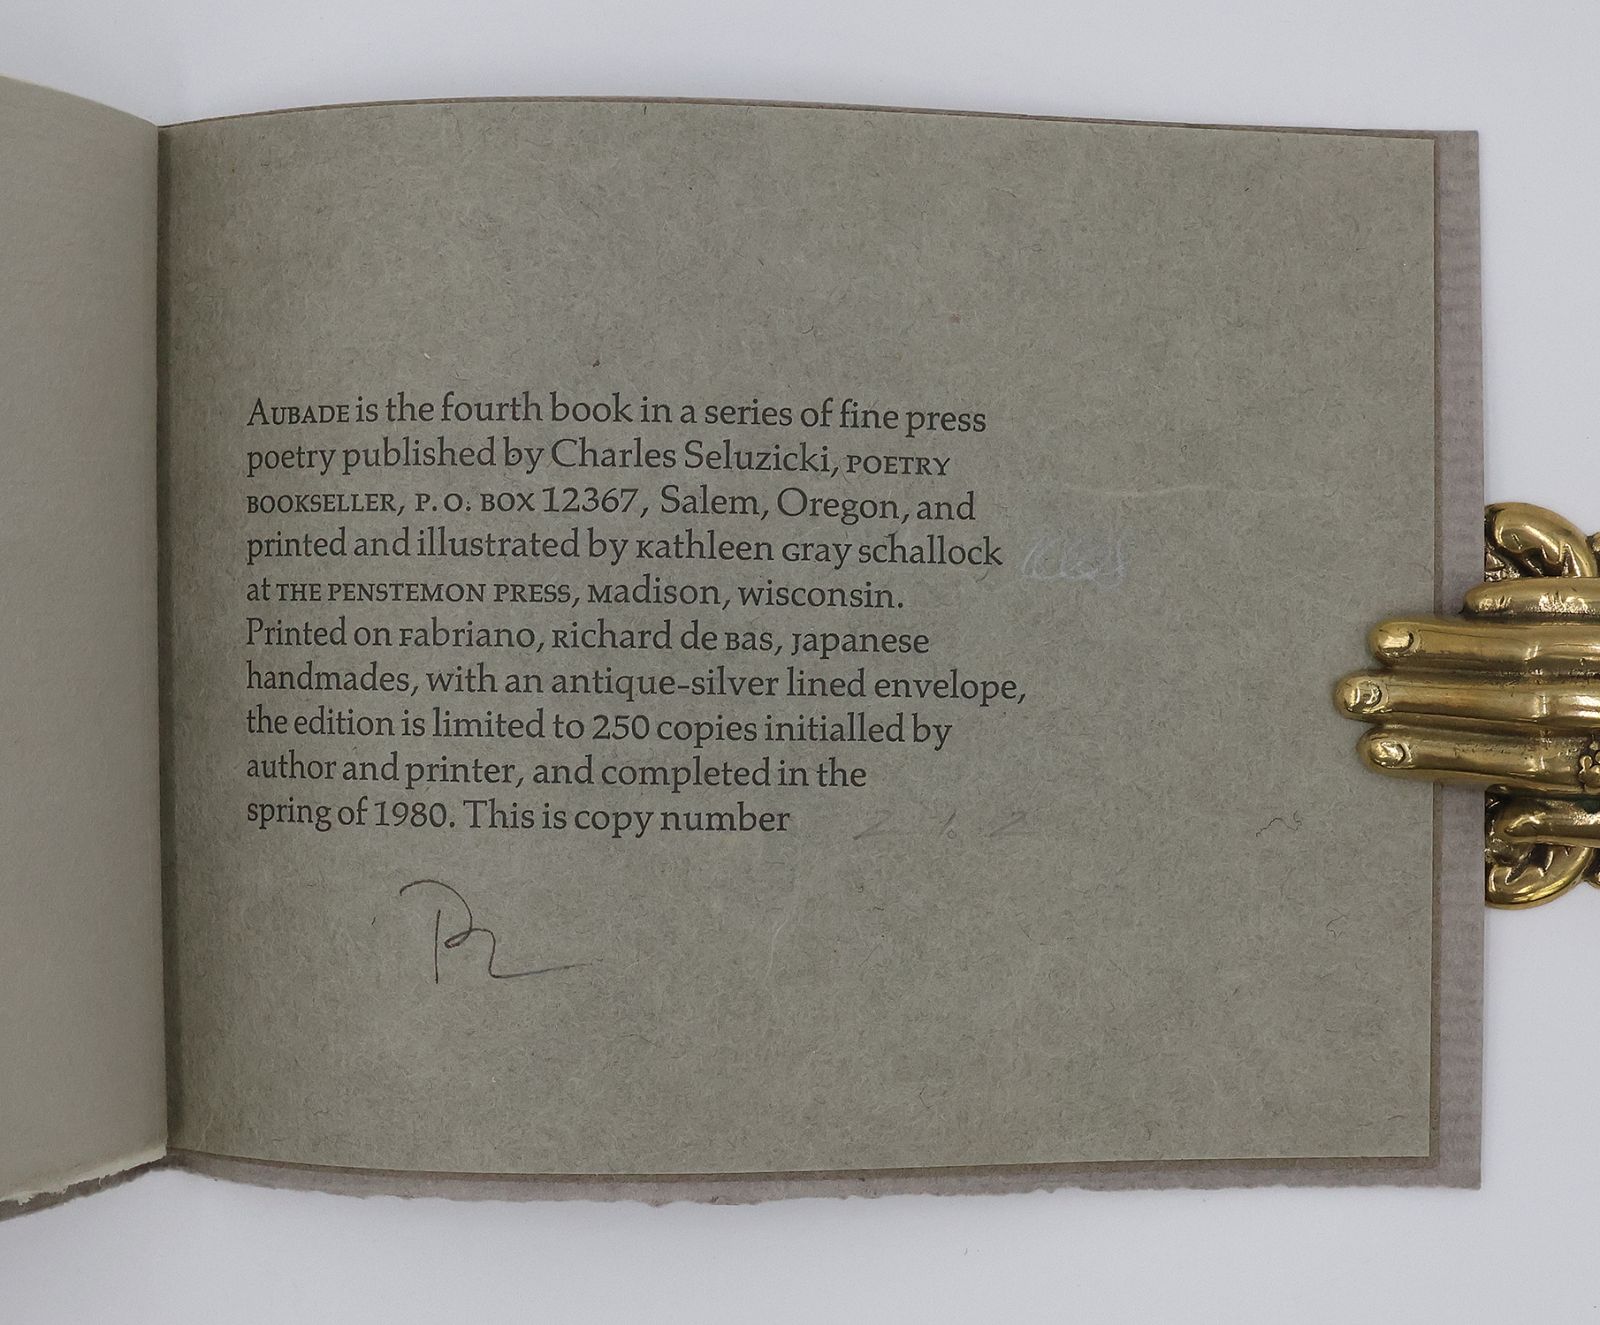 Aubade is the fourth book in a series of fine press
poetry published by Charles Seluzicki, POETRY
BOOKSELLER, P. O. BOX 12367, Salem, Oregon, and
printed and illustrated by Kathleen Gray Schallock
at THE PENSTEMON PRESS, Madison, Wisconsin.
Printed on Fabriano, Richard de Bas, Japanese
handmades, with an antique-silver lined envelope,
the edition is limited to 250 copies initialled by
author and printer, and completed in the
spring of 1980. This is copy number 212